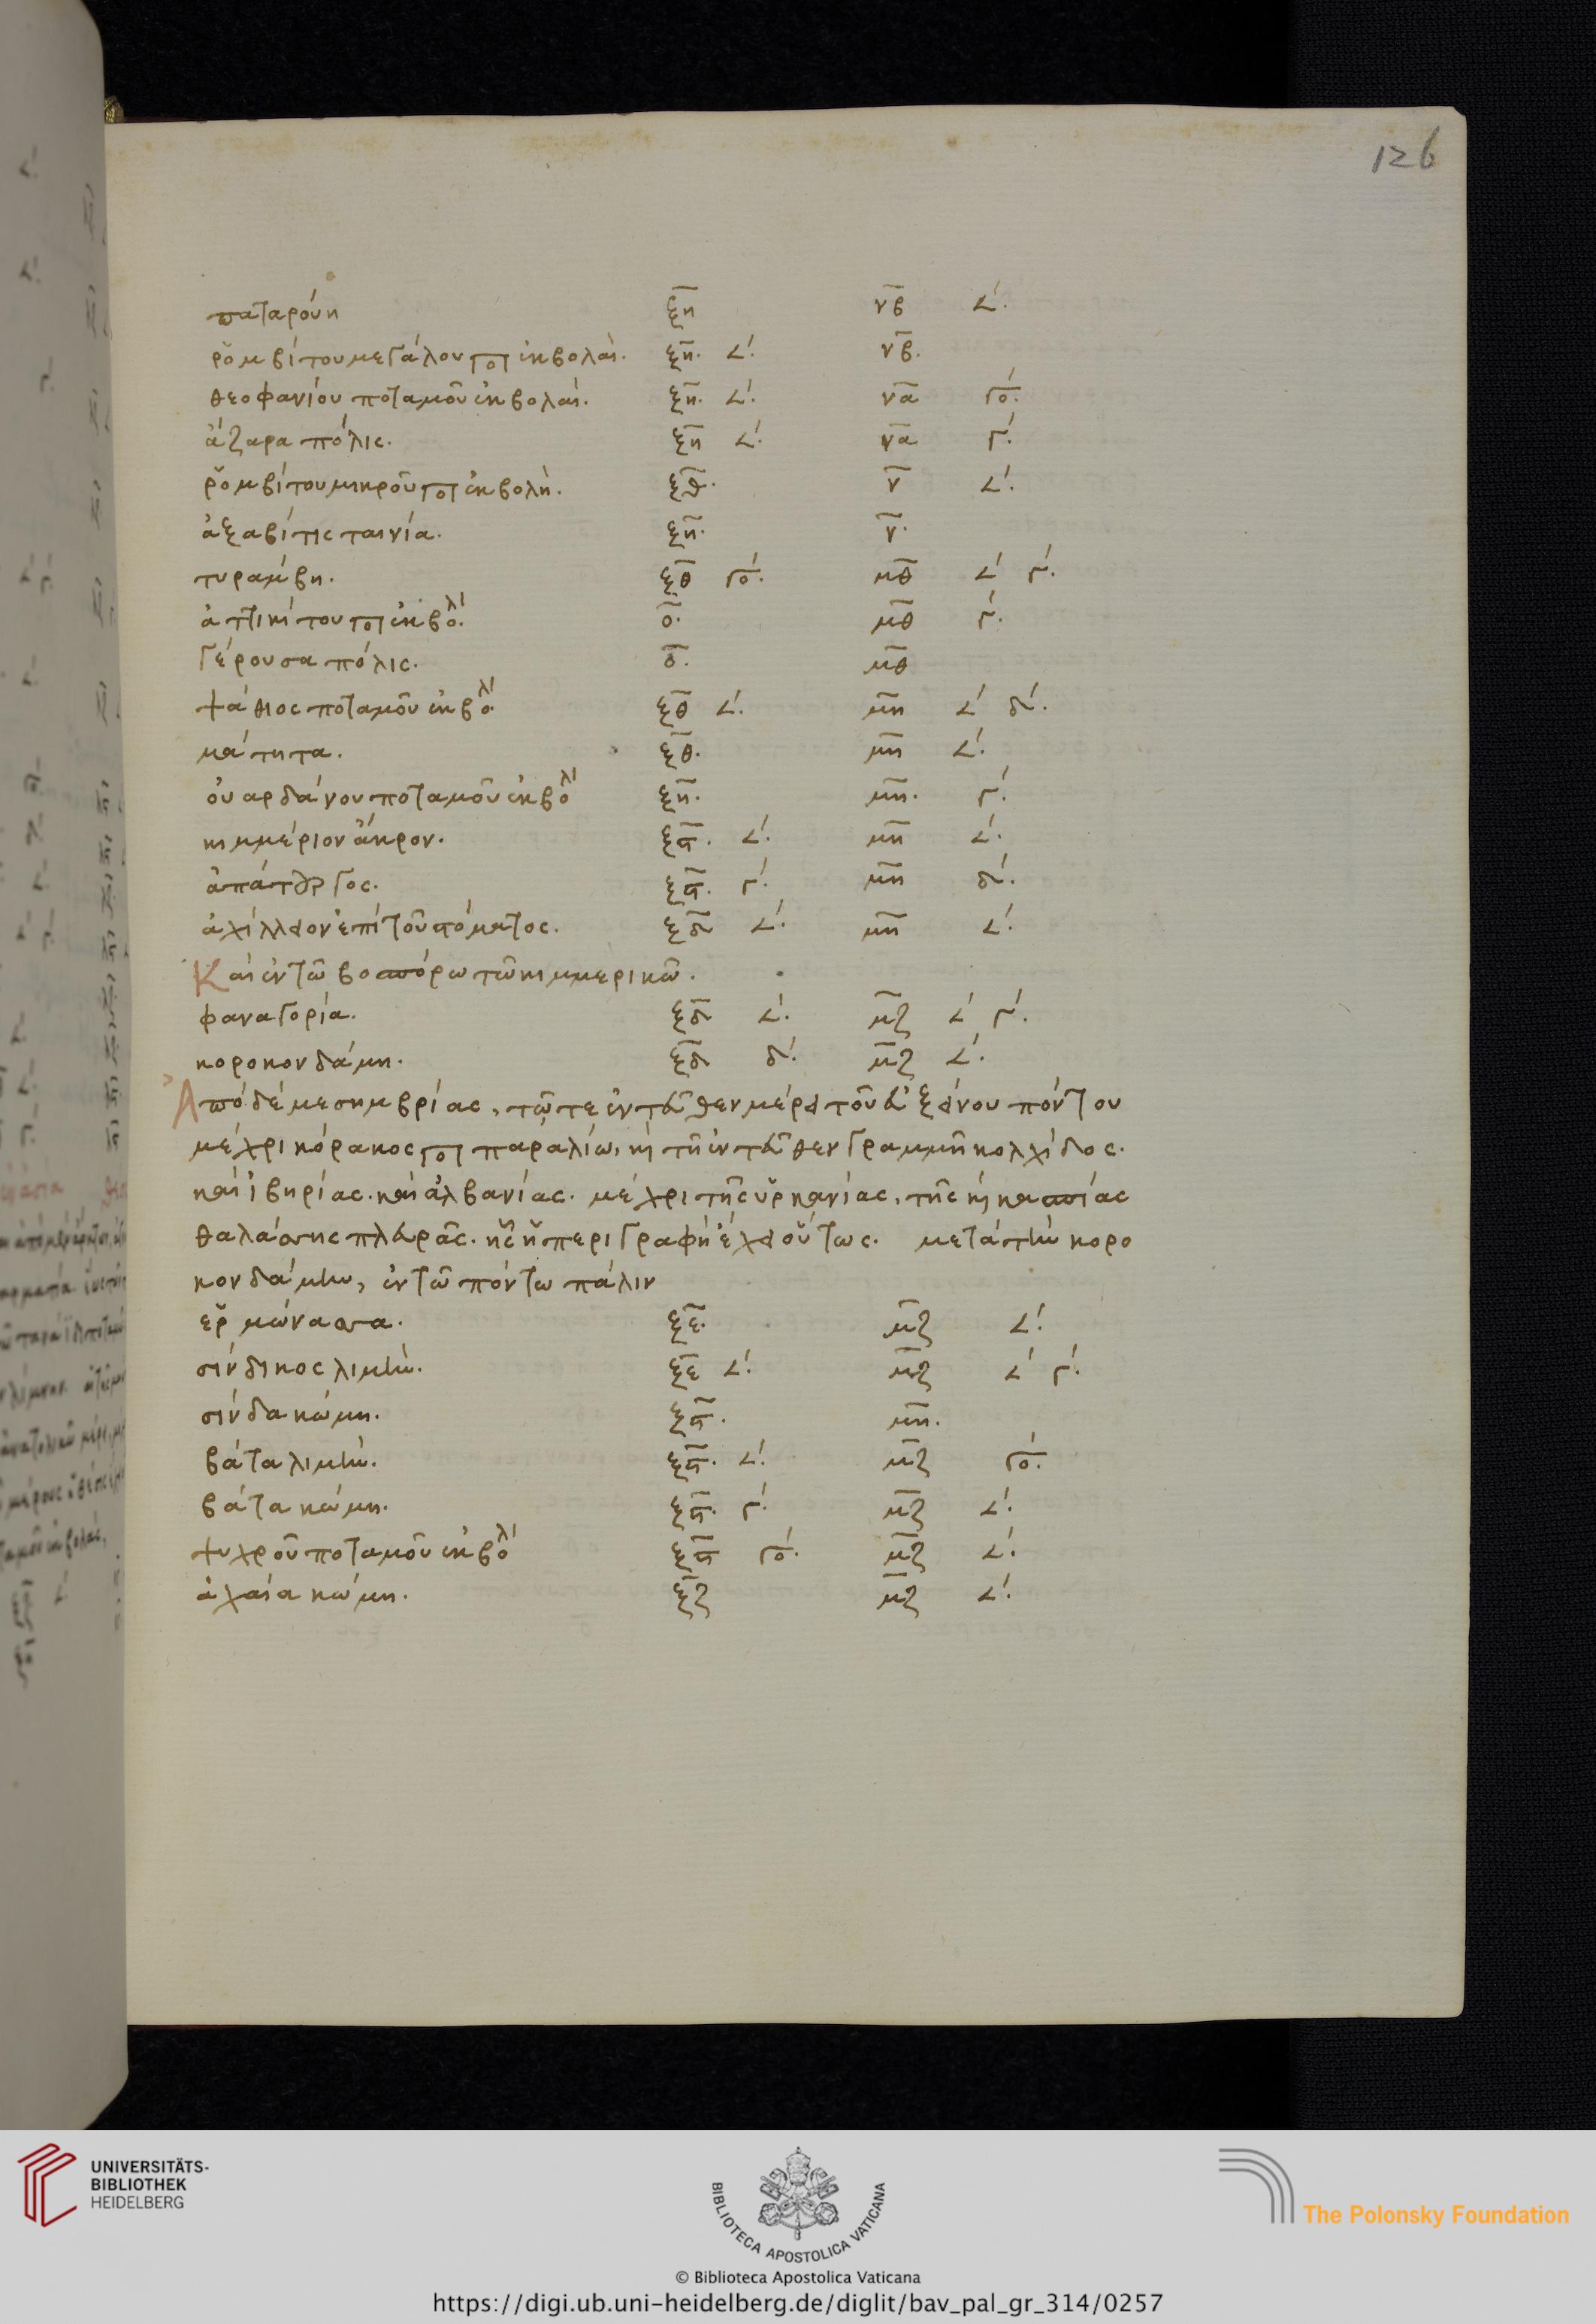 126
παταρούη ξη νβ ∠΄.
ῥομβίτου μεγάλου ποτ ἐκβολαί. ξη. ∠΄. νβ.
θεοφανίου ποταμοῦ ἐκβολαί. ξη. ∠΄. να γο΄.
ἄζαρα πόλις. ξη ∠΄. να γ΄.
ῥομβίτου μικροῦ ποτ ἐκβολή. ξθ. ν ∠΄.
ἀξαβίτις ταινία. ξη. ν.
τυράμβη. ξθ γο΄. μθ ∠΄ γ΄.
ἀττικίτου ποτ ἐκβολ. ο. μθ γ΄.
γέρουσα πόλις. ο. μθ
ψάθιος ποταμοῦ ἐκβολ ξθ ∠΄. μη ∠΄ δ΄.
μάτητα. ξθ. μη ∠΄.
οὐαρδάνου ποταμοῦ ἐκβολ ξη. μη. γ΄.
κιμμέριον ἄκρον. ξϛ. ∠΄. μη ∠΄.
ἀπάτουργος. ξϛ. γ΄. μη δ΄.
ἀχίλλειον ἐπὶ τοῦ στόματος. ξδ ∠΄. μη ∠΄.
Καὶ ἐν τῶ βοσπόρω τῶ κιμμερικῶ.
φαναγορία. ξδ ∠΄. μζ ∠΄ γ΄.
κοροκονδάμη. ξδ δ΄. μζ ∠΄.
Ἀπὸ δὲ μεσημβρίας, τῶ τε ἐντεῦθεν μέρει τοῦ εὐξείνου πόντου
μέχρι κόρακος ποτ παραλίω, καὶ τῆ ἐντεῦθεν γραμμῆ κολχίδος.
καὶ ἰβηρίας. καὶ ἀλβανίας. μέχρι τῆς ὑρκανίας, τῆς καὶ κασπίας
θαλάσσης πλευρᾶς. ἧς ἡ περιγραφὴ ἔχει οὕτως. μετὰ τὴν κορο
κονδάμην, ἐν τῶ πόντω πάλιν
ἑρμώνασσα. ξε. μζ ∠΄.
σίνδικος λιμήν. ξε ∠΄. μζ ∠΄ γ΄.
σίνδα κώμη. ξϛ. μη.
βάτα λιμήν. ξϛ. ∠΄. μζ γο΄.
βάτα κώμη. ξϛ. γ΄. μζ ∠΄.
ψυχροῦ ποταμοῦ ἐκβολ ξϛ γο΄. μζ ∠΄.
ἀχαία κώμη. ξζ μζ ∠΄.
UNIVERSITÄTS-
BIBLIOTHEK
HEIDELBERG
BIBLIOTECA APOSTOLICA VATICANA
The Polonsky Foundation
© Biblioteca Apostolica Vaticana
https://digi.ub.uni-heidelberg.de/diglit/bav_pal_gr_314/0257